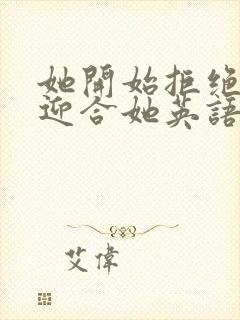 她開始拒絕
迎合她英語
艾偉